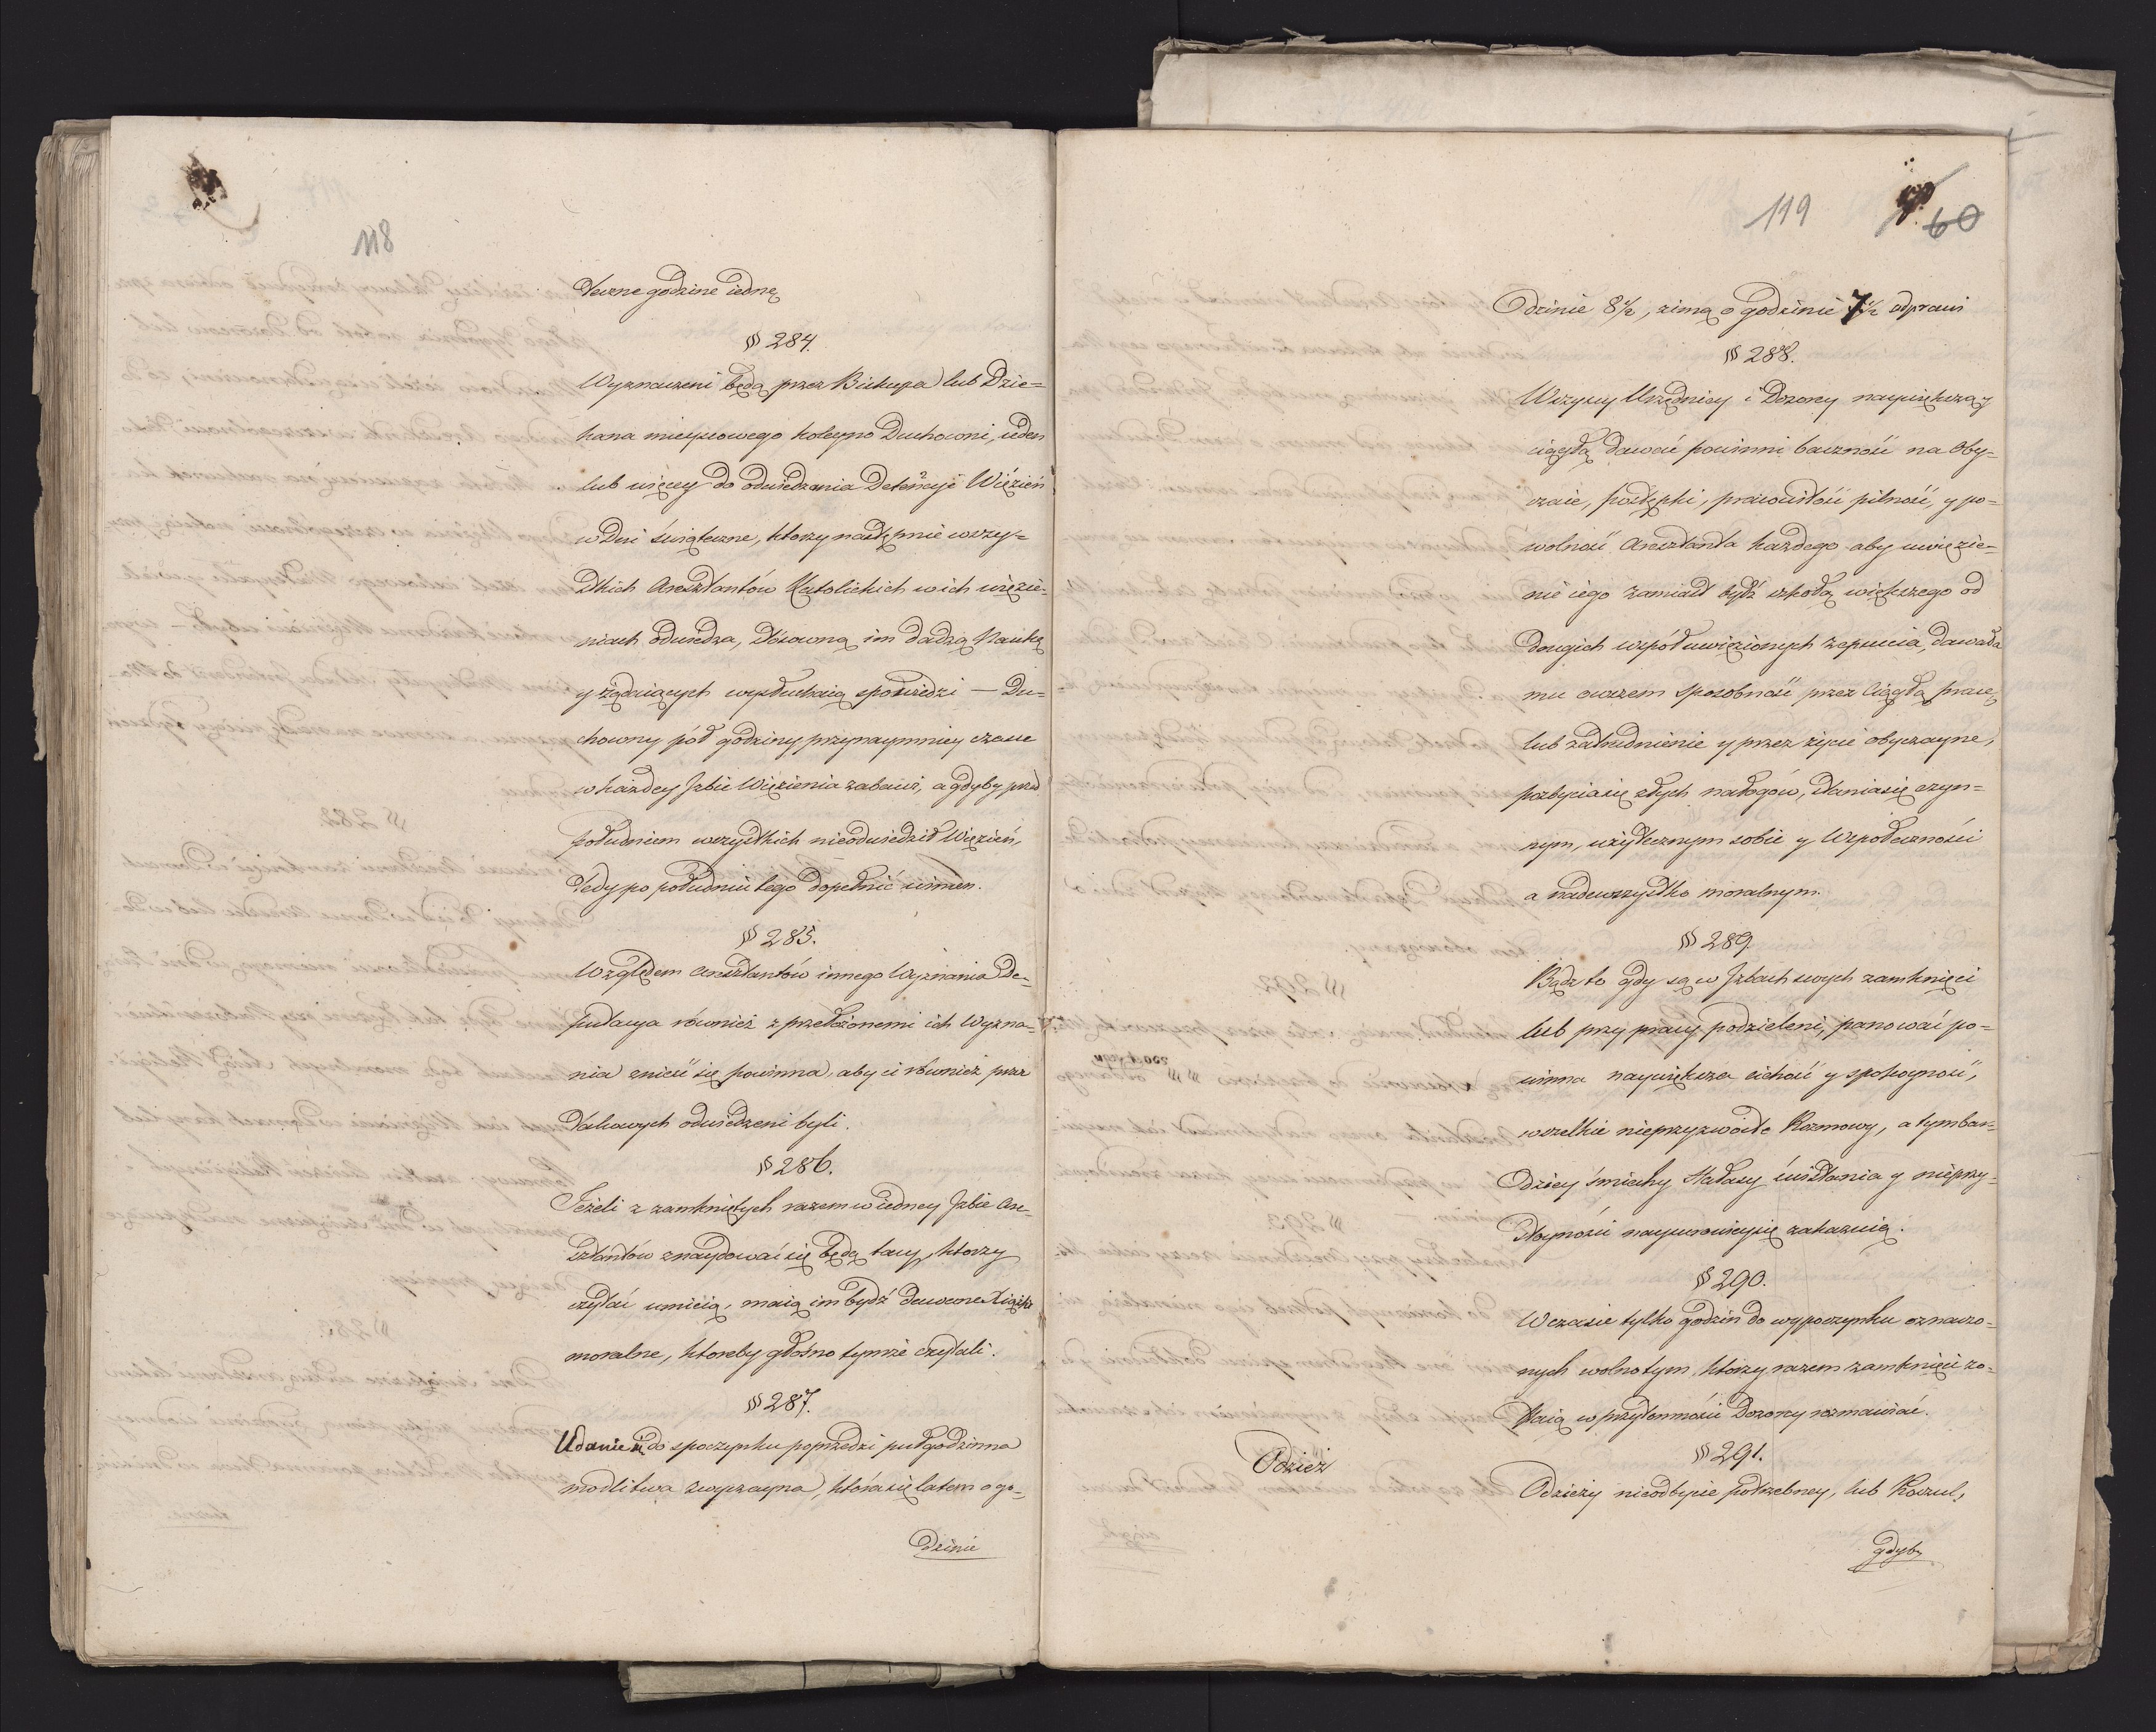 118
teczne godzine iedne
§ 284.
Wyznaczeni będą przez Biskupa lub Dzie=
kana mieyscowego koleyno Duchowni, ieden
lub więcey do odwiedzenia Detencyi Więzień
w Dni świąteczne, ktorzy następnie wszy=
stkich Aresztantów Katolickich w ich więzie=
niach odwiedzą, stosowną im dadzą Naukę
y żądaiących wysłuchaią spowiedzi — Du=
chowny pół godziny przynaymniey czasu
w każdey Izbie Więzienia zabawi, a gdyby przed
południem wszystkich nieodwiedził Więzień,
tedy po południu tego dopełnić winien.
§ 285.
Względem aresztantów innego Wyznania De=
putacya również z przełożonemi ich Wyzna=
nia znieść się powinna, aby ci również przez
takowych odwiedzeni byli.
§ 286.
Jeżeli z zamkniętych razem w iedney Izbie are=
sztantów znaydować się będą tacy, ktorzy
czytać umieią, maią im bydź dawane Xiążki
moralne, ktoreby głośno tymże czytali.
§ 287.
Udanie się do spoczynku poprzedzi pułgodzinna
modlitwa zwyczayna, która się latem o go=
dzinie
119
60
dzinie 8 1/2, zimą o godzinie 7 1/2 odprawi
§ 288.
Wszyscy Urzędnicy i Dozorcy naywiększą y
ciągłą dawać powinni baczność na Oby=
czaie, postępki, pracowitość pilność, y po=
wolność Aresztanta każdego aby uwięzie=
nie iego zamiast bydź szkołą większego od
drugich wspóluwięzionych zepsucia, dawała
mu owszem sposobność przez ciągłą pracę,
lub zatrudnienie y przez życie obyczayne,
pozbycia się złych nałogów, stania się czyn=
nym, użytecznym sobie y Wspołeczności
a nadewszystko moralnym.
§ 289.
Bądz to gdy są w Izbach swych zamknięci
lub przy pracy podzieleni, panować po=
winna naywiększa cichość y spokoyność,
wszelkie nieprzyzwoite Rozmowy, a tymbar=
dziey śmiechy Hałasy świstania y nieprzy=
stoyności naysurowiey się zakazuią.
§ 290.
W czasie tylko godzin do wypoczynku oznaczo=
nych wolno tym, którzy razem zamknięci zo=
staią w przytomności Dozorcy rozmawiać.
§ 291.
Odzież
Odzieży nieodbycie potrzebney, lub Koszul,
gdyby